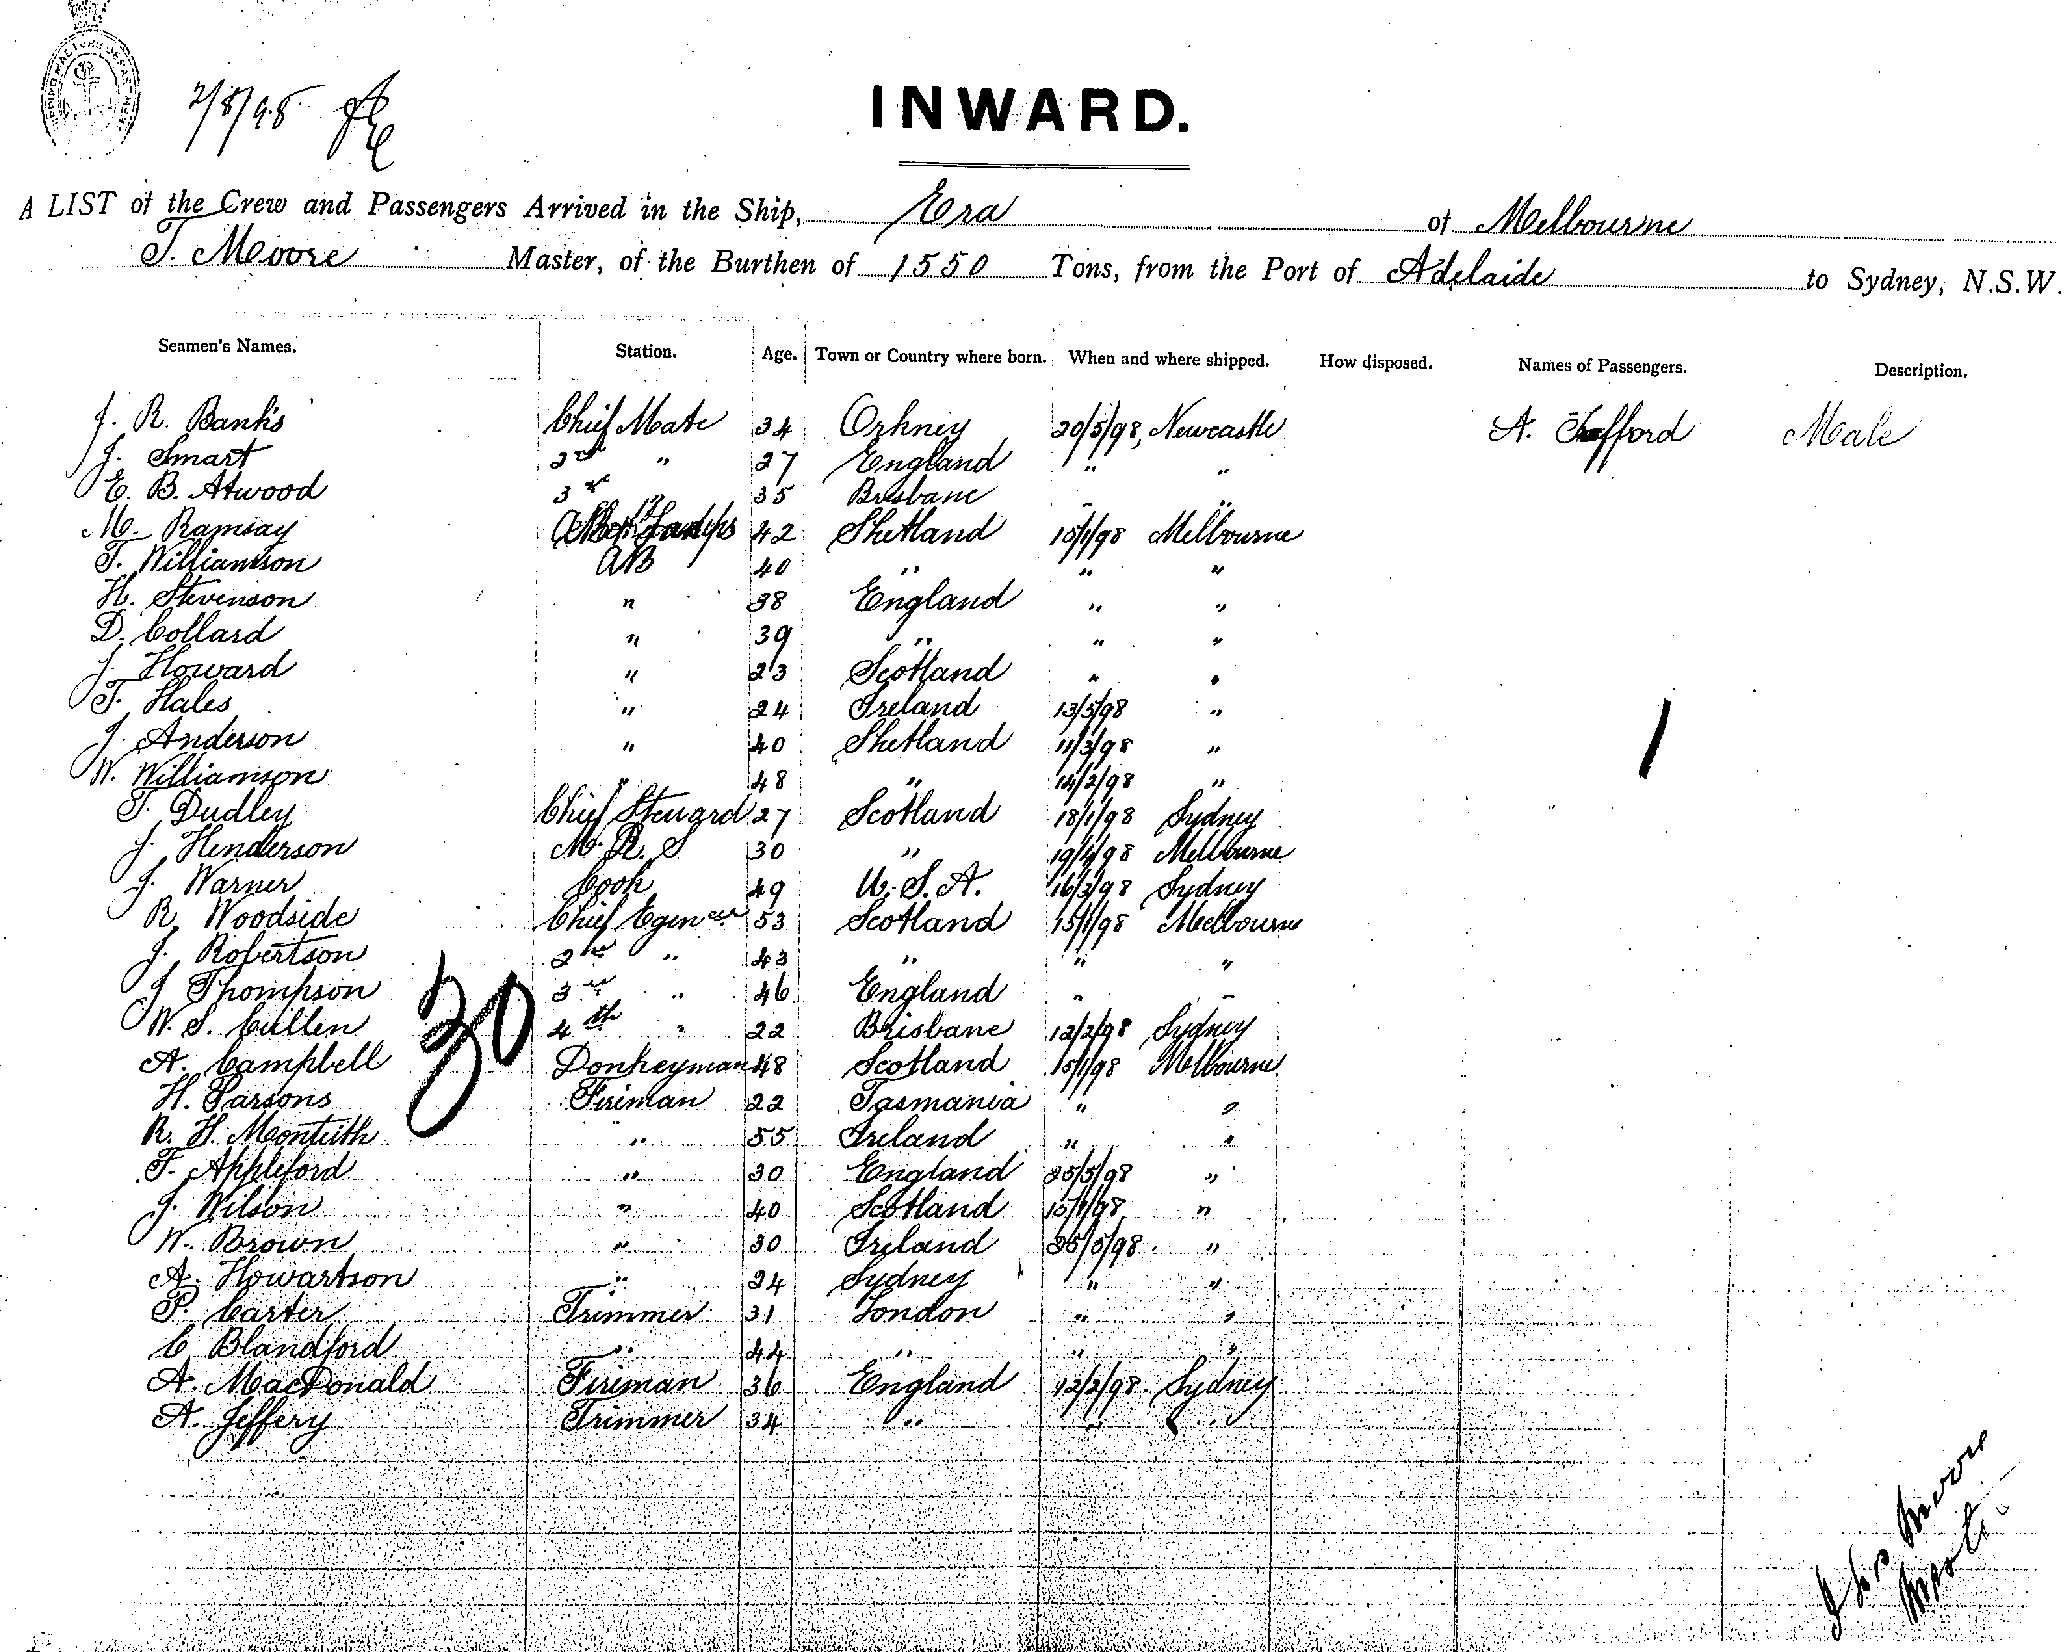 2/8/98
INWARD.
A LIST of the Crew and Passengers Arrived in the Ship, Era of Melbourne
T. Moore Master, of the Burthen of 1550 Tons, from the Port of Adelaide to Sydney, N.S.W.
Seamen's Names. Station. Age. Town or Country where born. When and where shipped. How disposed. Names of Passengers. Description.
J. R. Banks Chief Mate 34 Orkney 20/5/98, Newcastle A. Male
J. Smart 2nd " 27 England " "
E. B. Atwood 3rd 35 Brisbane " "
M. Ramsay 42 Shetland 15/1/98 Melbourne
T. Williamson AB 40 " " "
H. Stevenson " 38 England " "
D. Collard " 39 " " "
J. Howard " 23 Scotland " "
T. Hales " 24 Ireland 13/5/98 "
J. Anderson " 40 Shetland 11/3/98 "
W. Williamson " 48 " 14/2/98 "
T. Dudley Chief Steward 27 Scotland 18/1/98 Sydney
J. Henderson M. R. S 30 " 19/4/98 Melbourne
J. Warner Cook 49 U. S. A. 16/3/98 Sydney
R. Woodside Chief Egineer 53 Scotland 15/1/98 Melbourne
J. Robertson 2nd " 43 " " "
J Thompson 3rd " 46 England " "
W. S. Cullen 4th " 22 Brisbane 12/2/98 Sydney
A. Campbell Donkeyman 48 Scotland 15/1/98 Melbourne
30
H. Parsons Fireman 22 Tasmania " "
R. H. Monteith " 55 Ireland " "
T. Appleford " 30 England 25/5/98 "
J. Wilson " 40 Scotland 15/1/98 "
W. Brown " 30 Ireland 25/5/98 "
A. Howartson " 24 Sydney " "
P. Carter Trimmer 31 London " "
C Blandford " 44 " " "
A. MacDonald Fireman 36 England 12/2/98 Sydney
A. Jeffery Trimmer 34 " " "
1
Moore